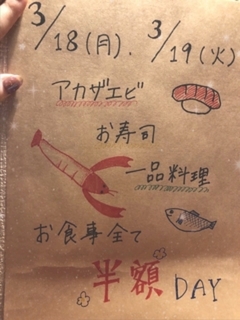 3/18(月). 3/19(火)
アカザエビ
お寿司
一品料理
お食事全て
半額 DAY